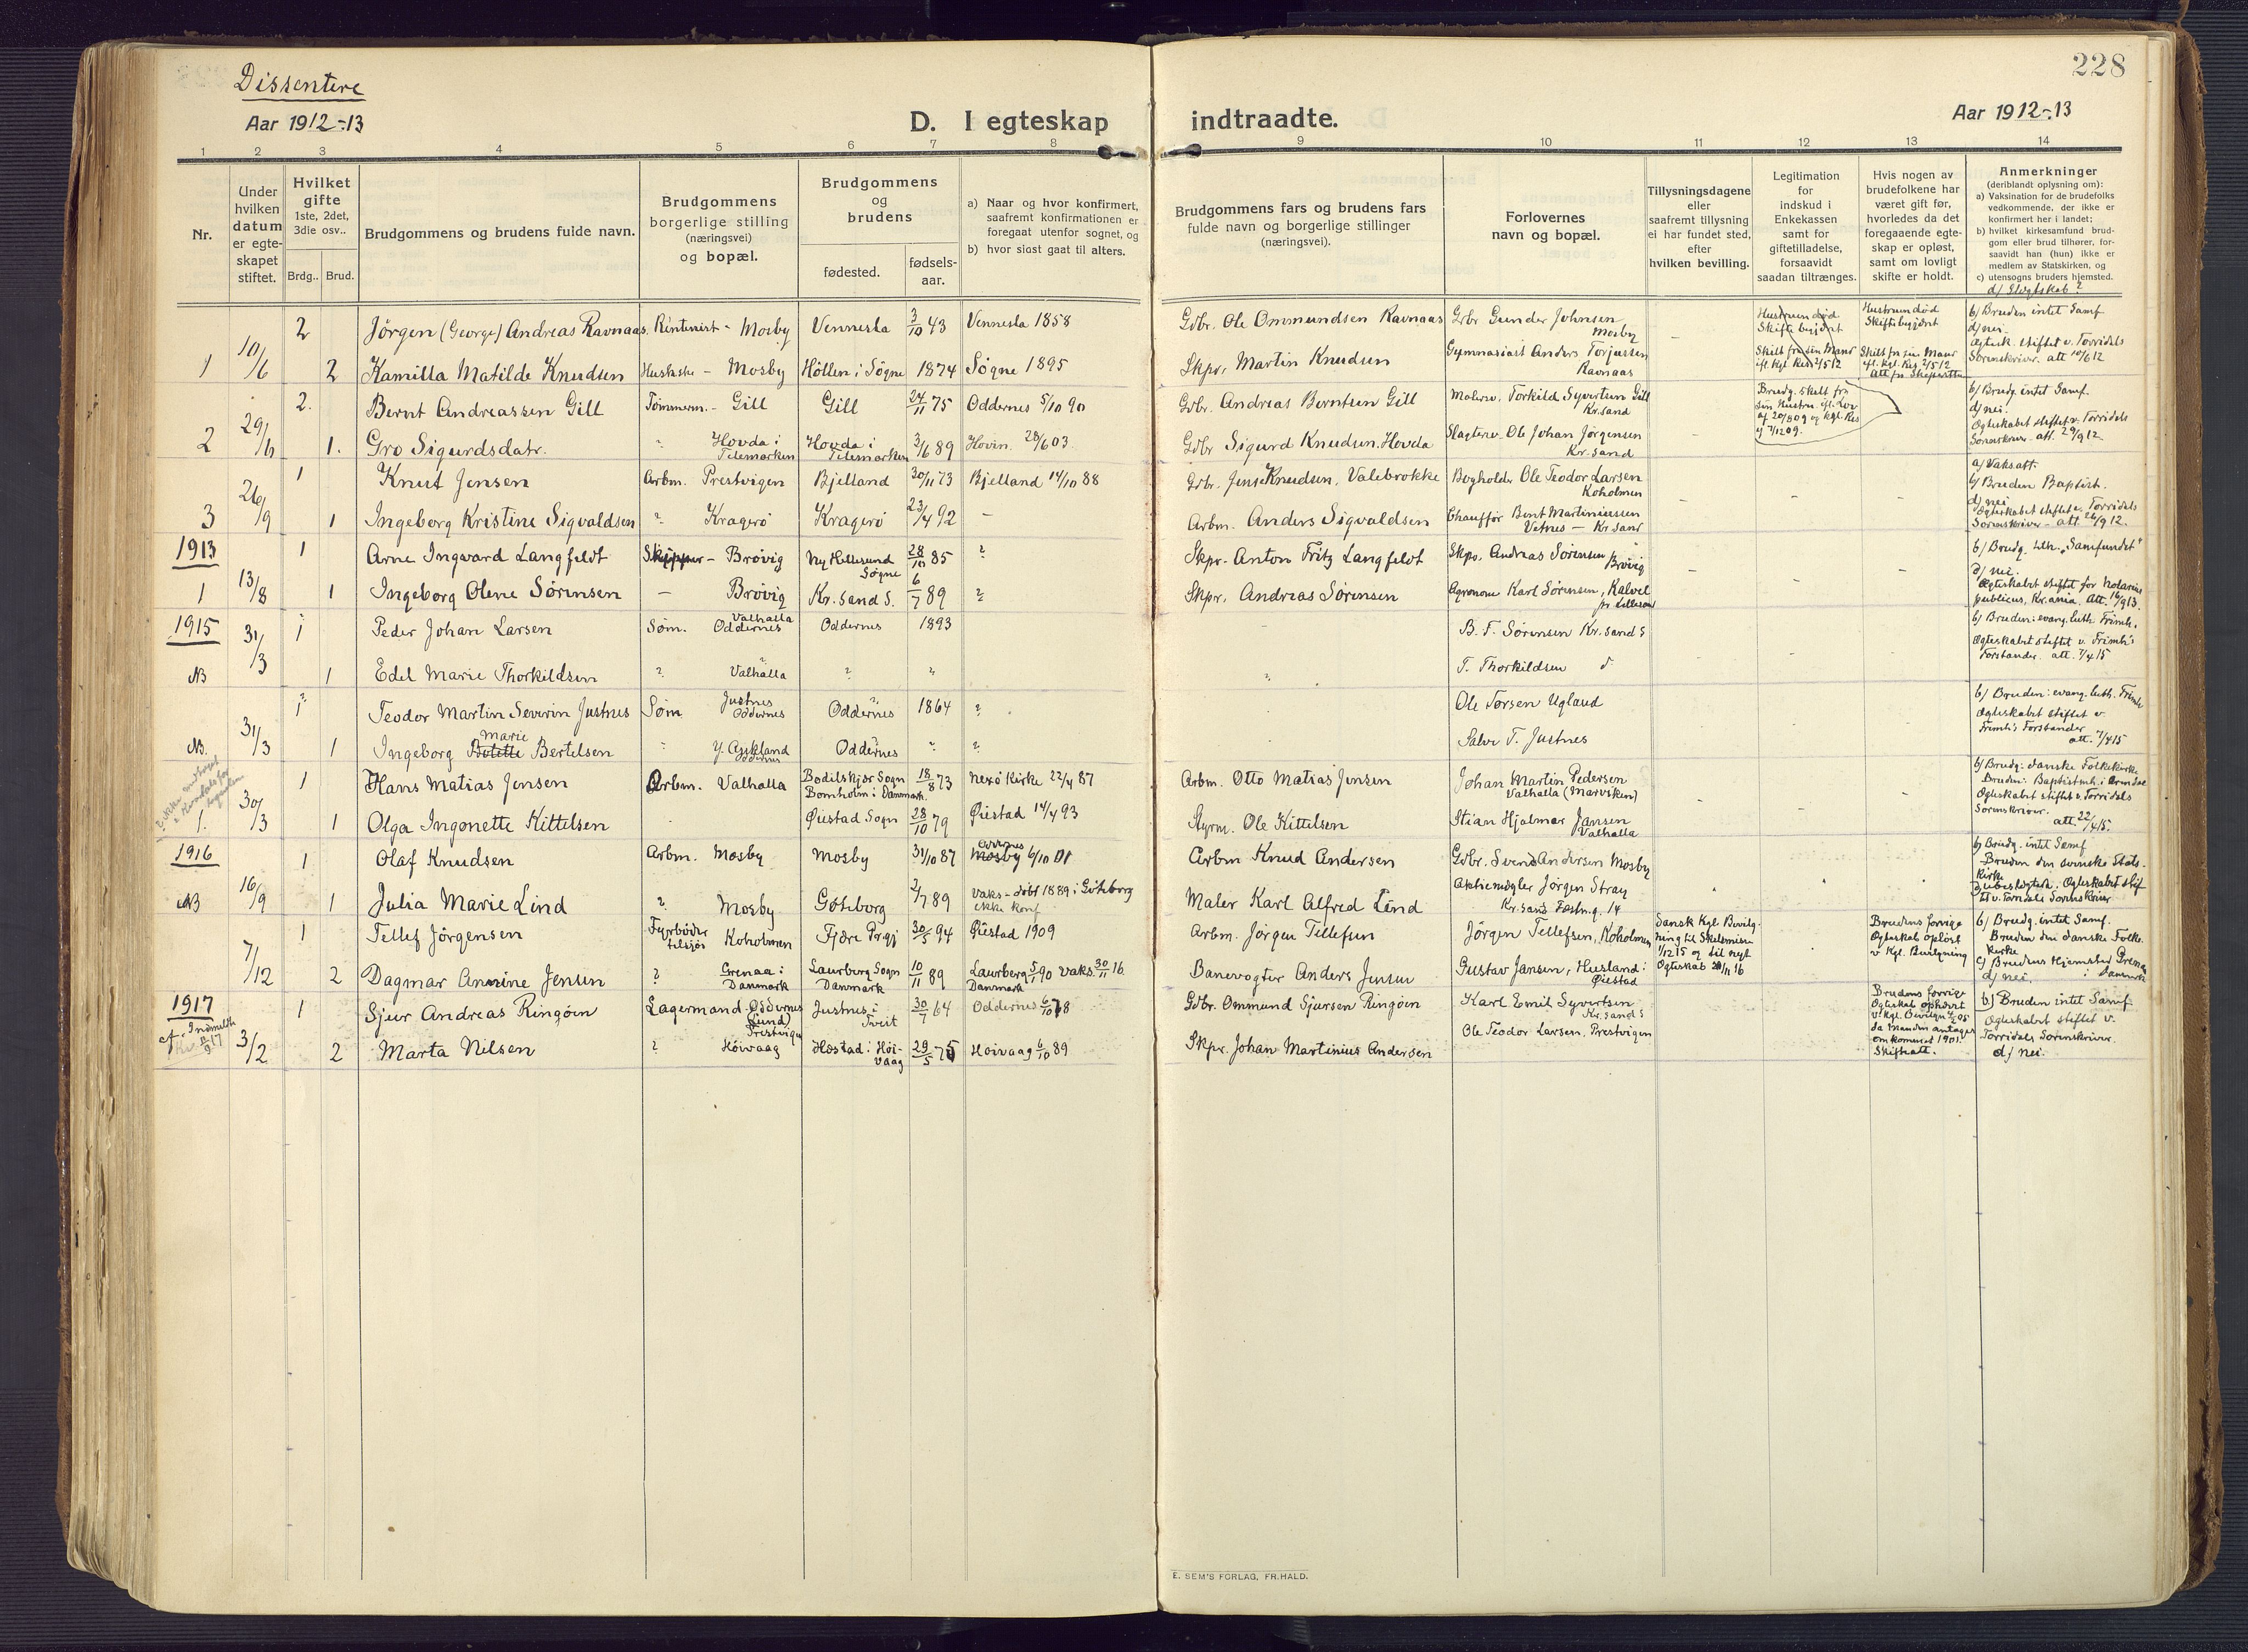 228
Dissentere
Aar 1912-13
D. I egteskap indtraadte.
Aar 1912-13
1 2 3 4 5 6 7 8 9 10 11 12 13 14
Nr.
Under
hvilken
datum
er egte-
skapet
stiftet.
Hvilket
gifte
1ste, 2det,
3die osv..
Brdg.. Brud.
Brudgommens og brudens fulde navn.
Brudgommens
borgerlige stilling
(næringsvei)
og bopæl.
Brudgommens
og
brudens
fødested.
fødsels-
aar.
a) Naar og hvor konfirmert,
saafremt konfirmationen er
foregaat utenfor sognet, og
b) hvor sidst gaat til alters.
Brudgommens fars og brudens fars
fulde navn og borgerlige stillinger
(næringsvei).
Forlovernes
navn og bopæl.
Tillysningsdagene
eller
saafremt tillysning
ei har fundet sted,
efter
hvilken bevilling.
Legitimation
for
indskud i
Enkekassen
samt for
giftetilladelse,
forsaavidt
saadan tiltrænges.
Hvis nogen av
brudefolkene har
været gift før,
hvorledes da det
foregaaende egte-
skap er opløst,
samt om lovligt
skifte er holdt.
Anmerkninger
(deriblandt oplysning om):
a) Vaksination for de brudefolks
vedkommende, der ikke er
konfirmert her i landet;
b) hvilket kirkesamfund brud-
gom eller brud tilhører, for-
saavidt han (hun) ikke er
medlem av Statskirken, og
c) utensogns bruders hjemsted.
d) Slegtskab?
2 Jörgen (George) Andreas Ravnaas Rentenist - Mosby Vennesla 3/10 43 Vennesla 1858 Gdbr. Ole Ommundsen Ravnaas Gdbr Gunder Johnsen Mosby
Hustruen död Skifte begjært
Hustruen död Skifte begjært
b) Bruden intet Samf
d) nei.
Ægtesk. stiftet v. Torridals
Sorenskriver. att 10/6 12
1 10/6 2 Kamilla Matilde Knudsen Huskske - Mosby Höllen i Søgne 1874 Søgne 1895 Skpr. Martin Knudsen Gymnasiast Anders Torjussen Ravnaas -
Skilt fra sin Mand efl. kgl. Res 2/5 12
Skilt fra sin Mand efl. kgl. Res 2/5 12
2. Bernt Andreassen Gill Tömmerm. - Gill Gill 24/11 75 Oddernes 5/10 90 Gdbr. Andreas Berntsen Gill Malerm. Torkild Syvertsen Gill Kr.sand
Brudg. skilt fra sin Hustru efl. Lov af 20/8 09 og kgl. Res af 7/12 09.
b) Brudg intet Samf.
d) nei.
Ægteskabet stiftet v. Torridals
Sorenskriver. att. 29/9 12.
2 29/6 1. Gro Sigurdsdatr. " Hovda i Telemarken Hovda i Telemarken 3/6 89 Hovin. 28/6 03. Gdbr Sigurd Knudsen Hovda Slagterm. Ole Johan Jørgensen Kr.sand -
1 Knut Jensen Arbm. Prestvigen Bjelland 30/11 73 Bjelland 14/10 88 Gdbr. Jens Knudsen, Valebrokke Bogholder Ole Teodor Larsen Koholmen
a) Vaks.att.
b) Bruden Baptist.
d) nei
Ægteskabet stiftet v. Torridals
Sorenskriver - att. 26/9 12.
3 26/9 1 Ingeborg Kristine Sigvaldsen " Kragerö Kragerö 23/4 92 - Arbm. Anders Sigvaldsen Chauffør Bernt Martiniussen Vetnes - Kr.sand - - -
1913
1 Arne Ingvard Langfeldt Skipper - Brøvig Ny Hellesund Søgne 28/10 85 " Skpr. Anton Fritz Langfeldt Skpr. Andreas Sörensen Brøvig
b) Brudg. tilh. "Samfundet"
d) nei.
Ægteskabet stiftet for Notarius
publicus, Kr.ania. Att. 16/9 13.
1 13/8 1 Ingeborg Olene Sörensen - Brøvig Kr.sand S. 6/7 89 " Skpr. Andreas Sörensen Agronom Karl Sörensen, Kalvel pr Lillesand - - -
1915
31/3 1 Peder Johan Larsen Søm. Valhalla Oddernes Oddernes 1893 - B. F. Sörensen Kr.sand S
b) Bruden: evang. luth. Frimh.
Ægteskabet stiftet v. Frimh's
Forstander. att. 7/4 15
NB 1 Edel Marie Thorkildsen " Valhalla " " " T. Thorkildsen d.
1 Teodor Martin Severin Justnes Søm Justnes Oddernes Oddernes 1864 " Ole Torsen Ugland
b) Bruden: evang. luth. Frimh
Ægteskabet stiftet v.
Frimh's Forstander
att. 7/4 15
NB. 31/3 1 Ingeborg Marie Bertelsen " Y. Aukland Oddernes Oddernes " " Salve T. Justnes
1 Hans Matias Jensen Arbm. Valhalla Bodilskjer Sogn Bornholm i Danmark. 18/8 73 Nexö Kirke 22/4 87 Arbm. Otto Matias Jensen Johan Martin Pedersen Valhalla (Marviken)
b) Brudg: danske Folkekirke
Bruden: Baptistmh. i Arendal
Ægteskabet stiftet v. Torridals
Sorenskriver.
att. 22/4 15.
1. 30/3 1 Olga Ingonette Kittelsen Øiestad Sogn 28/10 79 Øiestad 14/4 93 Styrm. Ole Kittelsen Stian Hjalmar Jansen Valhalla
1916
1 Olaf Knudsen Arbm. Mosby Mosby 31/10 87 Oddernes 6/10 01 Arbm Knud Andersen Gdbr. Svend Andersen Mosby
b) Brudg. intet Samf
Bruden den svenske Stats-
kirke
NB 16/9 1 Julia Marie Lind " Mosby Göteborg 2/7 89 Vaks - döbt 1889 i Göteborg ikke konf Maler Karl Alfred Lind Aktiemegler Jørgen Stray Kr.sand Festn.g. 14
1 Tellef Jörgensen Fyrbøder tilsjøs Koholmen Fjære Prgj 30/5 94 Øiestad 1909 Arbm. Jörgen Tellefsen Jörgen Tellefsen, Koholmen
Dansk Kgl Bevilg-
ning til Skilsmisse
1/12 15 og til nyt
Ægteskab 21/11 16
Brudens forrige
Ægteskab opløst
v. Kgl. Bevilgning
b) Brudg. intet Samf.
Bruden den danske Folke-
kirke
c) Brudens Hjemsted Grenaa
i Danmark
d) nei.
7/12 2 Dagmar Annine Jensen " Grenaa i Danmark Laurberg Sogn Danmark 10/11 89 Laurberg 5/1 90 Vaks. 30/11 16. Danmark Banevogter Anders Jensen Gustav Jansen, Husland i Øiestad
1917
1 Sjur Andreas Ringöin Lagermand. Oddernes (Lund) Prestvigen Justnes i Tveit 30/7 64 Oddernes 6/10 78 Gdbr. Ommund Sjursen Ringöin Karl Emil Syvertsen Kr.sand S
Brudens forrige
Ægteskab ophævet
da Manden antages
omkommet 1901.
Skifteatt.
b) Bruden intet Samf-
Ægteskabet stiftet v.
Torridals Sorenskriver.
d) nei.
3/2 2 Marta Nilsen " Höivaag Hæstad i Høi-vaag 29/5 75 Höivaag 6/10 89 Skpr. Johan Martinius Andersen Ole Teodor Larsen. Prestvigen
E. SEM'S FORLAG, FR.HALD.